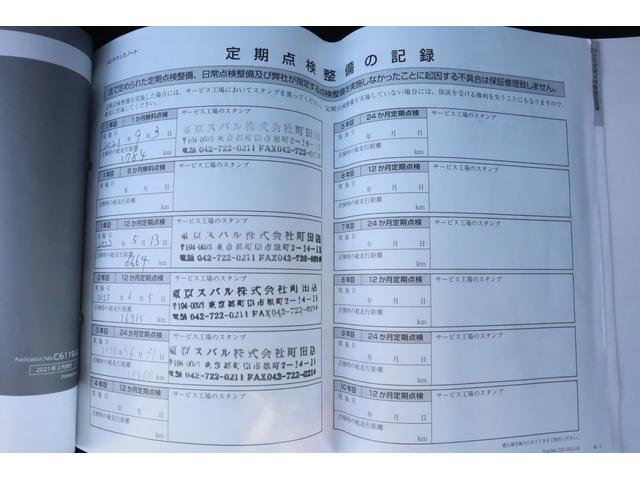 メンテナンスノート
定期点検整備の記録
法で定められた定期点検整備、日常点検整備及び弊社が指定する点検整備を実施しなかったことに起因する不具合は保証修理致しません。
定期点検整備を実施した場合には、サービス工場においてスタンプを貰ってください。定期点検整備を実施していない場合には、保証を受ける権利を失うことにもなりますので、
確実に実施してください。
1年目 1か月無料点検 サービス工場のスタンプ
実施日
2021年9月3日
点検時の総走行距離
1784 km
東京スバル株式会社町田店
〒194-0023 東京都町田市旭町2-14-11
電話 042-722-0211 FAX042-722-0214
1年目 6か月無料点検 サービス工場のスタンプ
実施日
年 月 日
点検時の総走行距離
km
1年目 12か月定期点検 サービス工場のスタンプ
実施日
2022年5月13日
点検時の総走行距離
6664 km
東京スバル株式会社町田店
電話 042-722-0211 FAX042-722-0214
2年目 12か月定期点検 サービス工場のスタンプ
実施日
2023年6月5日
点検時の総走行距離
16915 km
東京スバル株式会社町田店
電話 042-722-0211 FAX042-722-0214
3年目 24か月定期点検 サービス工場のスタンプ
実施日
点検時の総走行距離
km
東京スバル株式会社町田店
電話 042-722-0211 FAX042-722-0214
4年目 12か月定期点検 サービス工場のスタンプ
実施日
年 月 日
点検時の総走行距離
km
5年目 24か月定期点検 サービス工場のスタンプ
実施日
年 月 日
点検時の総走行距離
km
6年目 12か月定期点検 サービス工場のスタンプ
実施日
年 月 日
点検時の総走行距離
km
7年目 24か月定期点検 サービス工場のスタンプ
実施日
年 月 日
点検時の総走行距離
km
8年目 12か月定期点検 サービス工場のスタンプ
実施日
年 月 日
点検時の総走行距離
km
9年目 24か月定期点検 サービス工場のスタンプ
実施日
年 月 日
点検時の総走行距離
km
10年目 12か月定期点検 サービス工場のスタンプ
実施日
年 月 日
点検時の総走行距離
km
Publication No.C6119
2021年2月発行